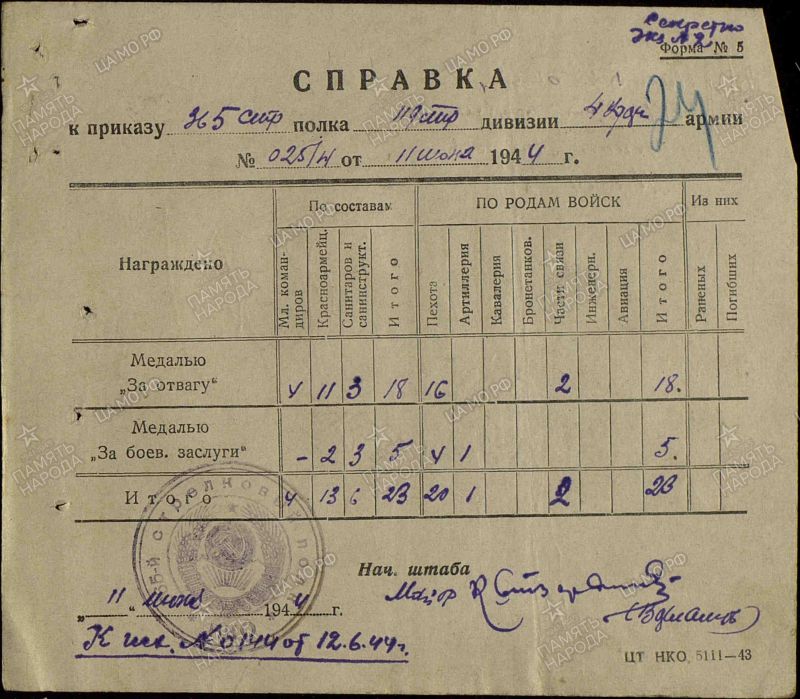 Секретно
Экз № 2
Форма № 5
СПРАВКА
74
к приказу 365 стр полка 119 стр дивизии 4 Удар армии
№ 025/н от 11 июня 1944 г.
Награждено
По составам
ПО РОДАМ ВОЙСК
Из них
Мл. коман-
диров
Красноармейц.
Санитаров и
санинструкт.
Итого
Пехота
Артиллерия
Кавалерия
Бронетанков.
Части связи
Инженерн.
Авиация
Итого
Раненых
Погибших
Медалью
„За отвагу“ 4 11 3 18 16 2 18.
Медалью
„За боев. заслуги“ - 2 3 5 4 1 5.
Итого 4 13 6 23 20 1 2 23
65-й стрелковый полк
Нач. штаба
Майор
„11“ июня 1944 г.
К исх. № 0144 от 12.6.44г.
ЦТ НКО 5111—43
ПАМЯТЬ НАРОДА
ЦАМО РФ